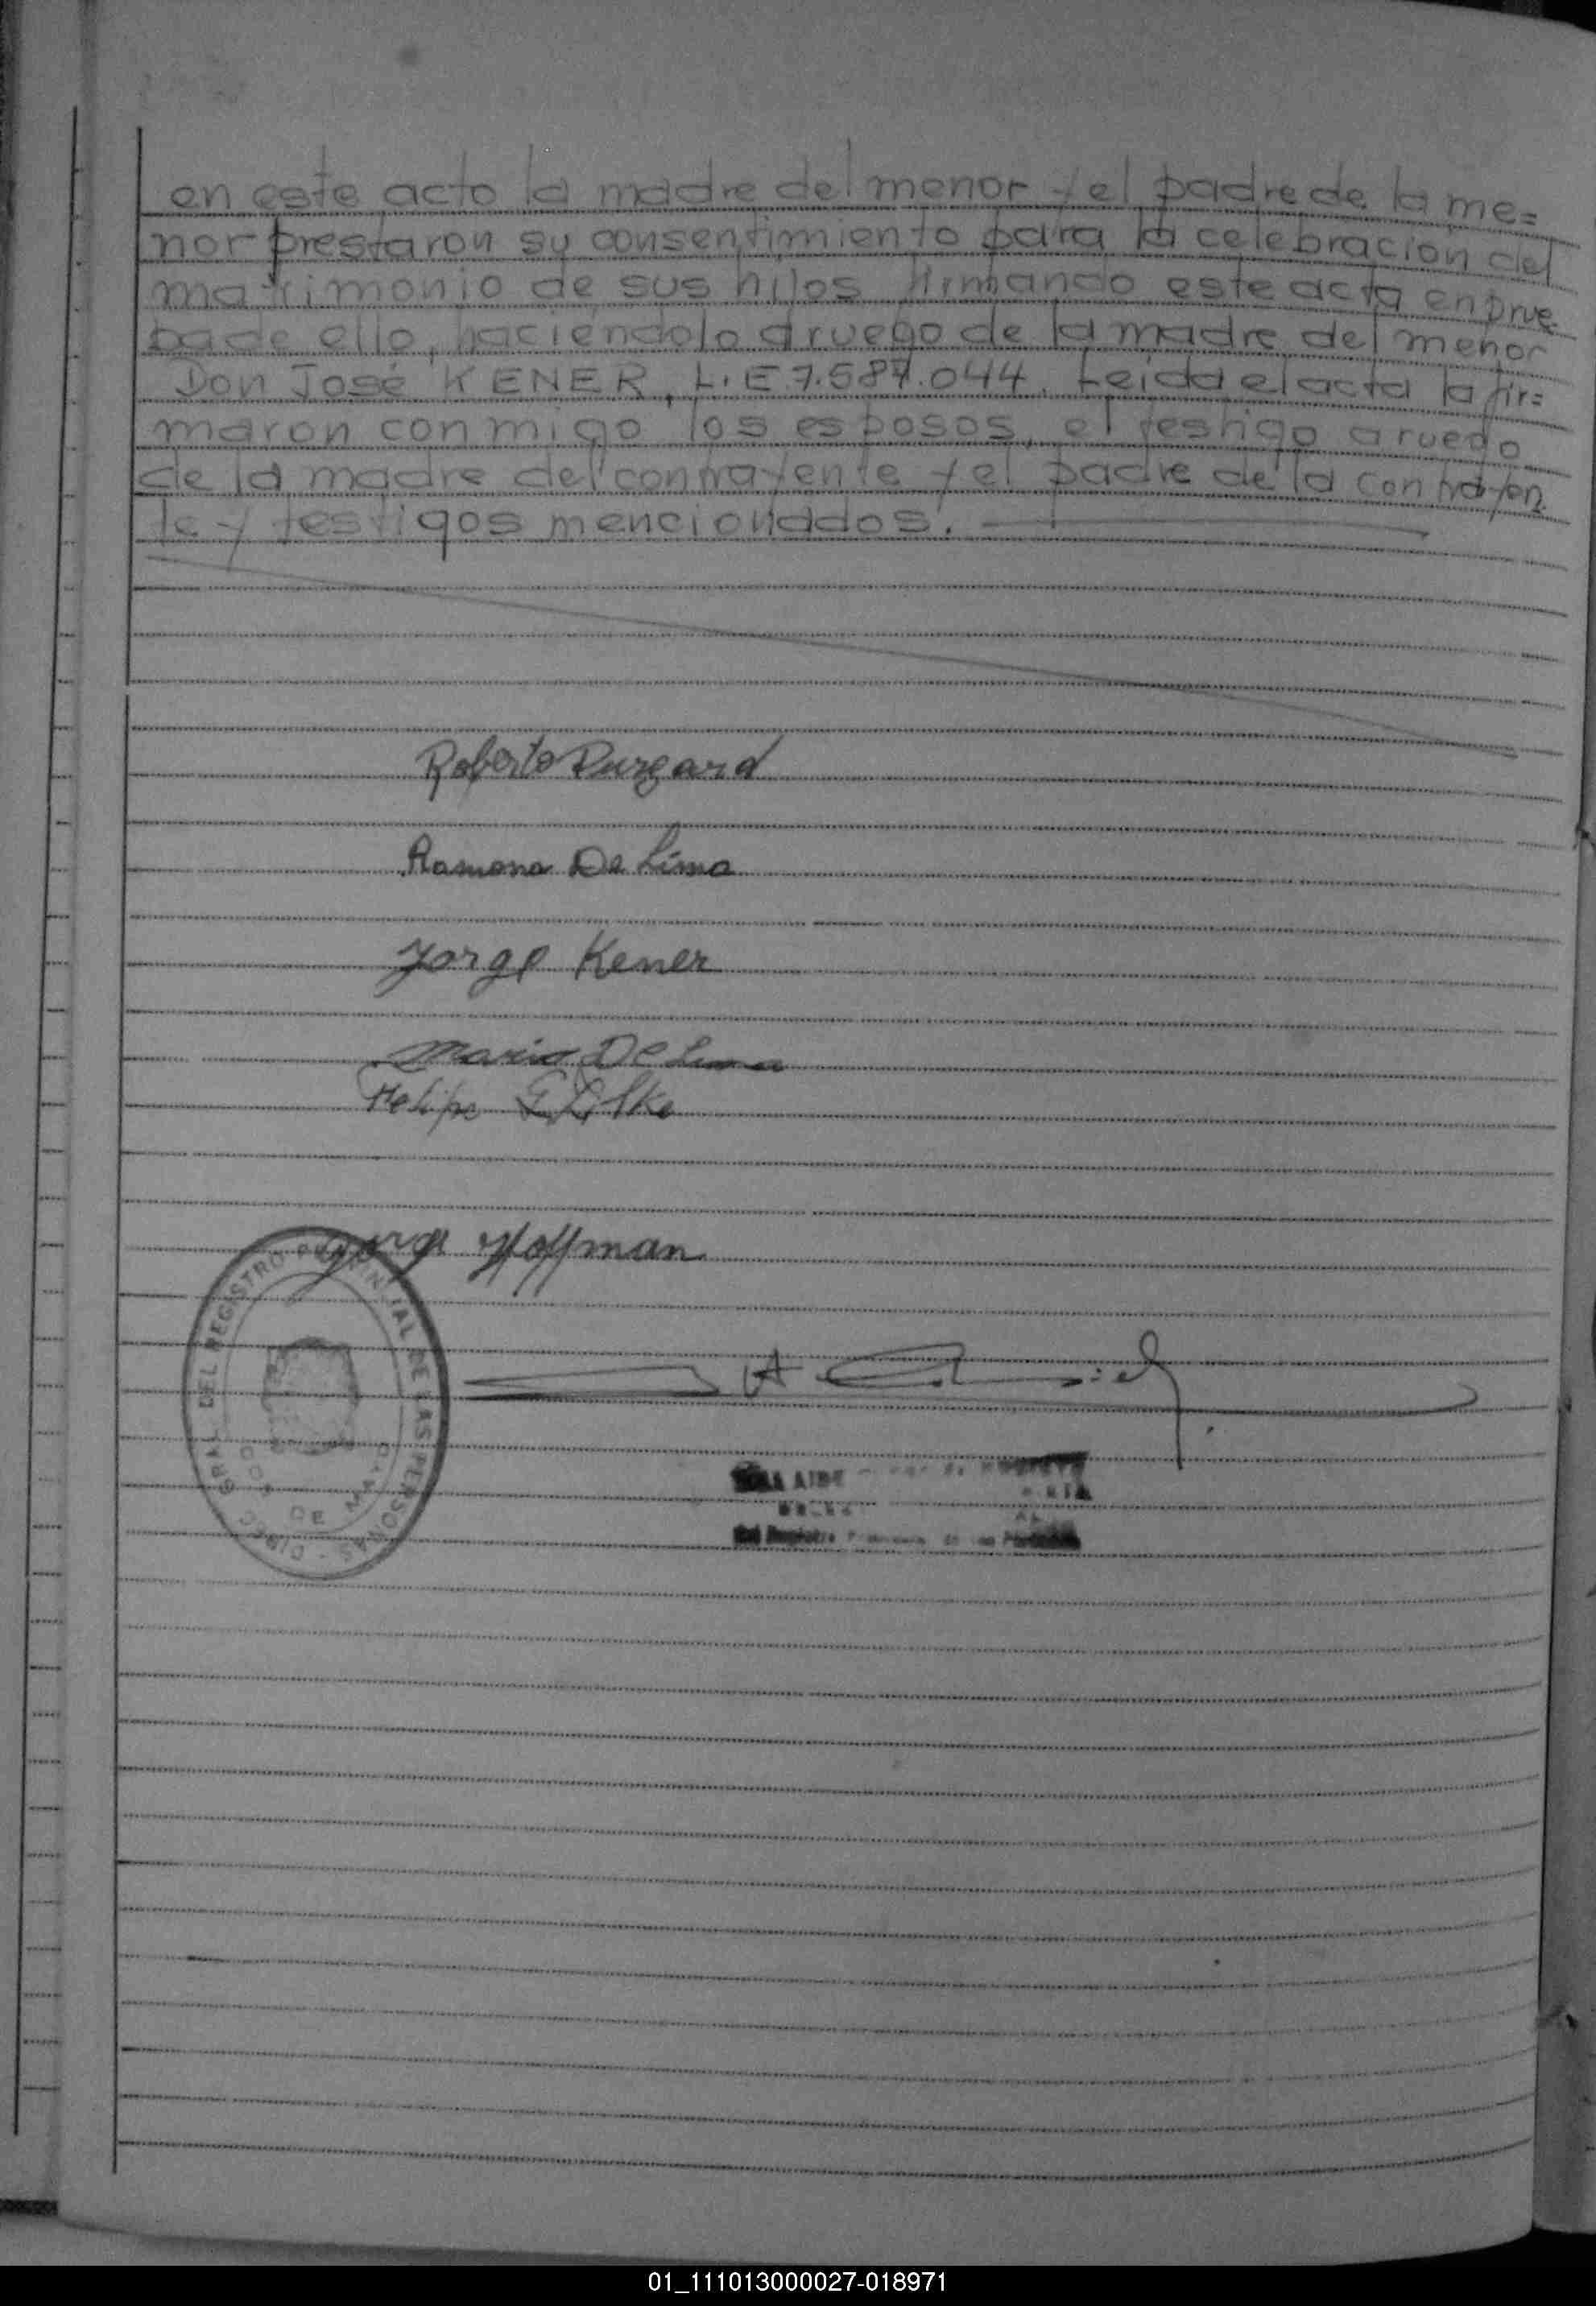 en este acto la madre del menor y el padre de la me=
nor prestaron su consentimiento para la celebración del
matrimonio de sus hijos firmando este acta en prue
ba de ello, haciéndolo a ruego de la madre del menor
Don José KENER, L.E 7.587.044. Leida el acta la fir=
maron conmigo los esposos, el testigo a ruego
de la madre del contrayente y el padre de la contrayen
te y testigos mencionados.
Roberto Durgard
Ramona De Lima
Jorge Kener
Mario De Lima
Felipe
Jorge Hoffman
DIREC. GRAL. DEL REGISTRO PROVINCIAL DE LAS PERSONAS
DE
del Registro de las Personas
01_111013000027-018971